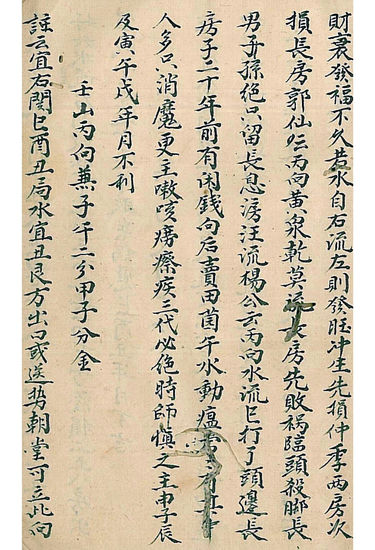 財衰發福不久若水自右流左則發旺冲生先損仲季兩房次
損長房郭仙云丙向黃泉乾莫流長房先敗禍臨頭殺腳長
男孫絕只留長息滂汪流楊公云丙向水流巳打了頭邊長
房子二十年前有闲錢向后賣田薗午水動瘟
人多只消魔更主嗽咳癆瘵疾三代必絕時師慎之主申子辰
及寅午戌年月不利
壬山丙向兼子午二分甲子分金
註云宜右関巳酉丑局水宜丑艮方出口或送势朝堂可立此向